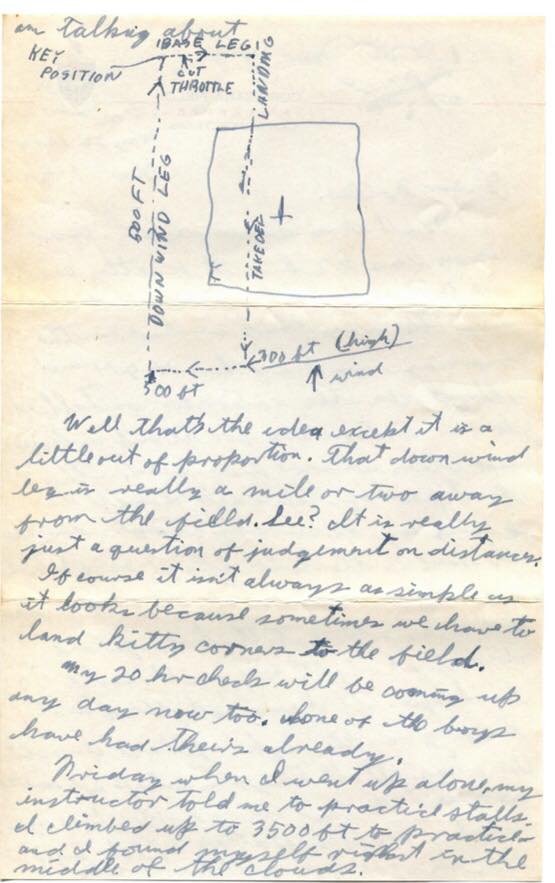 am talking about
BASE LEG
KEY
POSITION
CUT
THROTTLE
LANDING
500 FT
DOWN WIND LEG
TAKEOFF
300 ft (high)
wind
500 ft
Well that's the idea except it is a
little out of proportion. That down wind
leg is really a mile or two away
from the field. See? It is really
just a question of judgement on distances.
Of course it isn't always as simple as
it looks because sometimes we have to
land kitty corners to the field.
My 20 hr check will be coming up
any day now too. Some of the boys
have had theirs already.
Friday when I went up alone, my
instructor told me to practice stalls.
I climbed up to 3500 ft to practice
and I found myself right in the
middle of the clouds.